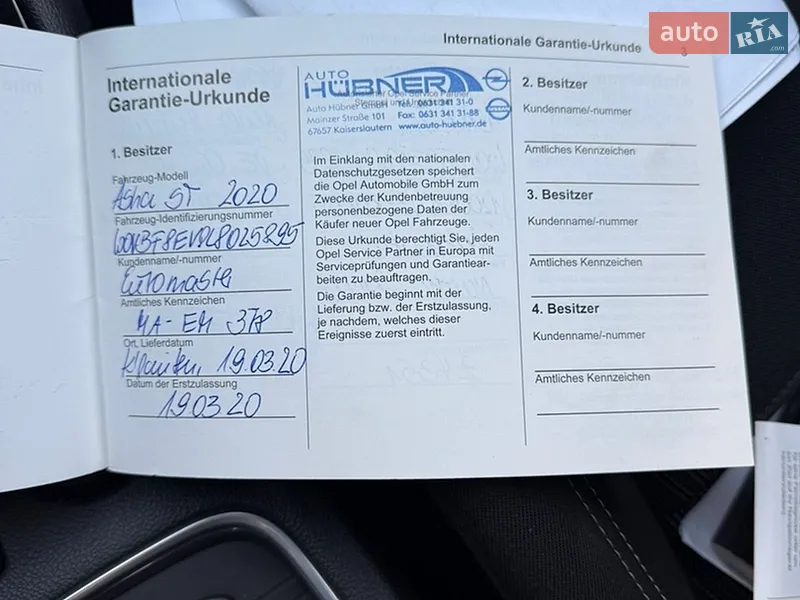 Internationale Garantie-Urkunde
3
auto
RIA
.com
Internationale
Garantie-Urkunde
1. Besitzer
Fahrzeug-Modell
Astra ST 2020
Fahrzeug-Identifizierungsnummer
W0VBF8EV0L8025895
Kundenname/-nummer
Euromaster
Amtliches Kennzeichen
MA-EM 378
Ort, Lieferdatum
19.03.20
Datum der Erstzulassung
190320
AUTO
HÜBNER
Auto Hübner GmbH Tel: 0631 341 31-0
Mainzer Straße 101 Fax: 0631 341 31-88
67657 Kaiserslautern www.auto-huebner.de
Im Einklang mit den nationalen
Datenschutzgesetzen speichert
die Opel Automobile GmbH zum
Zwecke der Kundenbetreuung
personenbezogene Daten der
Käufer neuer Opel Fahrzeuge.
Diese Urkunde berechtigt Sie, jeden
Opel Service Partner in Europa mit
Serviceprüfungen und Garantiear-
beiten zu beauftragen.
Die Garantie beginnt mit der
Lieferung bzw. der Erstzulassung,
je nachdem, welches dieser
Ereignisse zuerst eintritt.
2. Besitzer
Kundenname/-nummer
Amtliches Kennzeichen
3. Besitzer
Kundenname/-nummer
Amtliches Kennzeichen
4. Besitzer
Kundenname/-nummer
Amtliches Kennzeichen